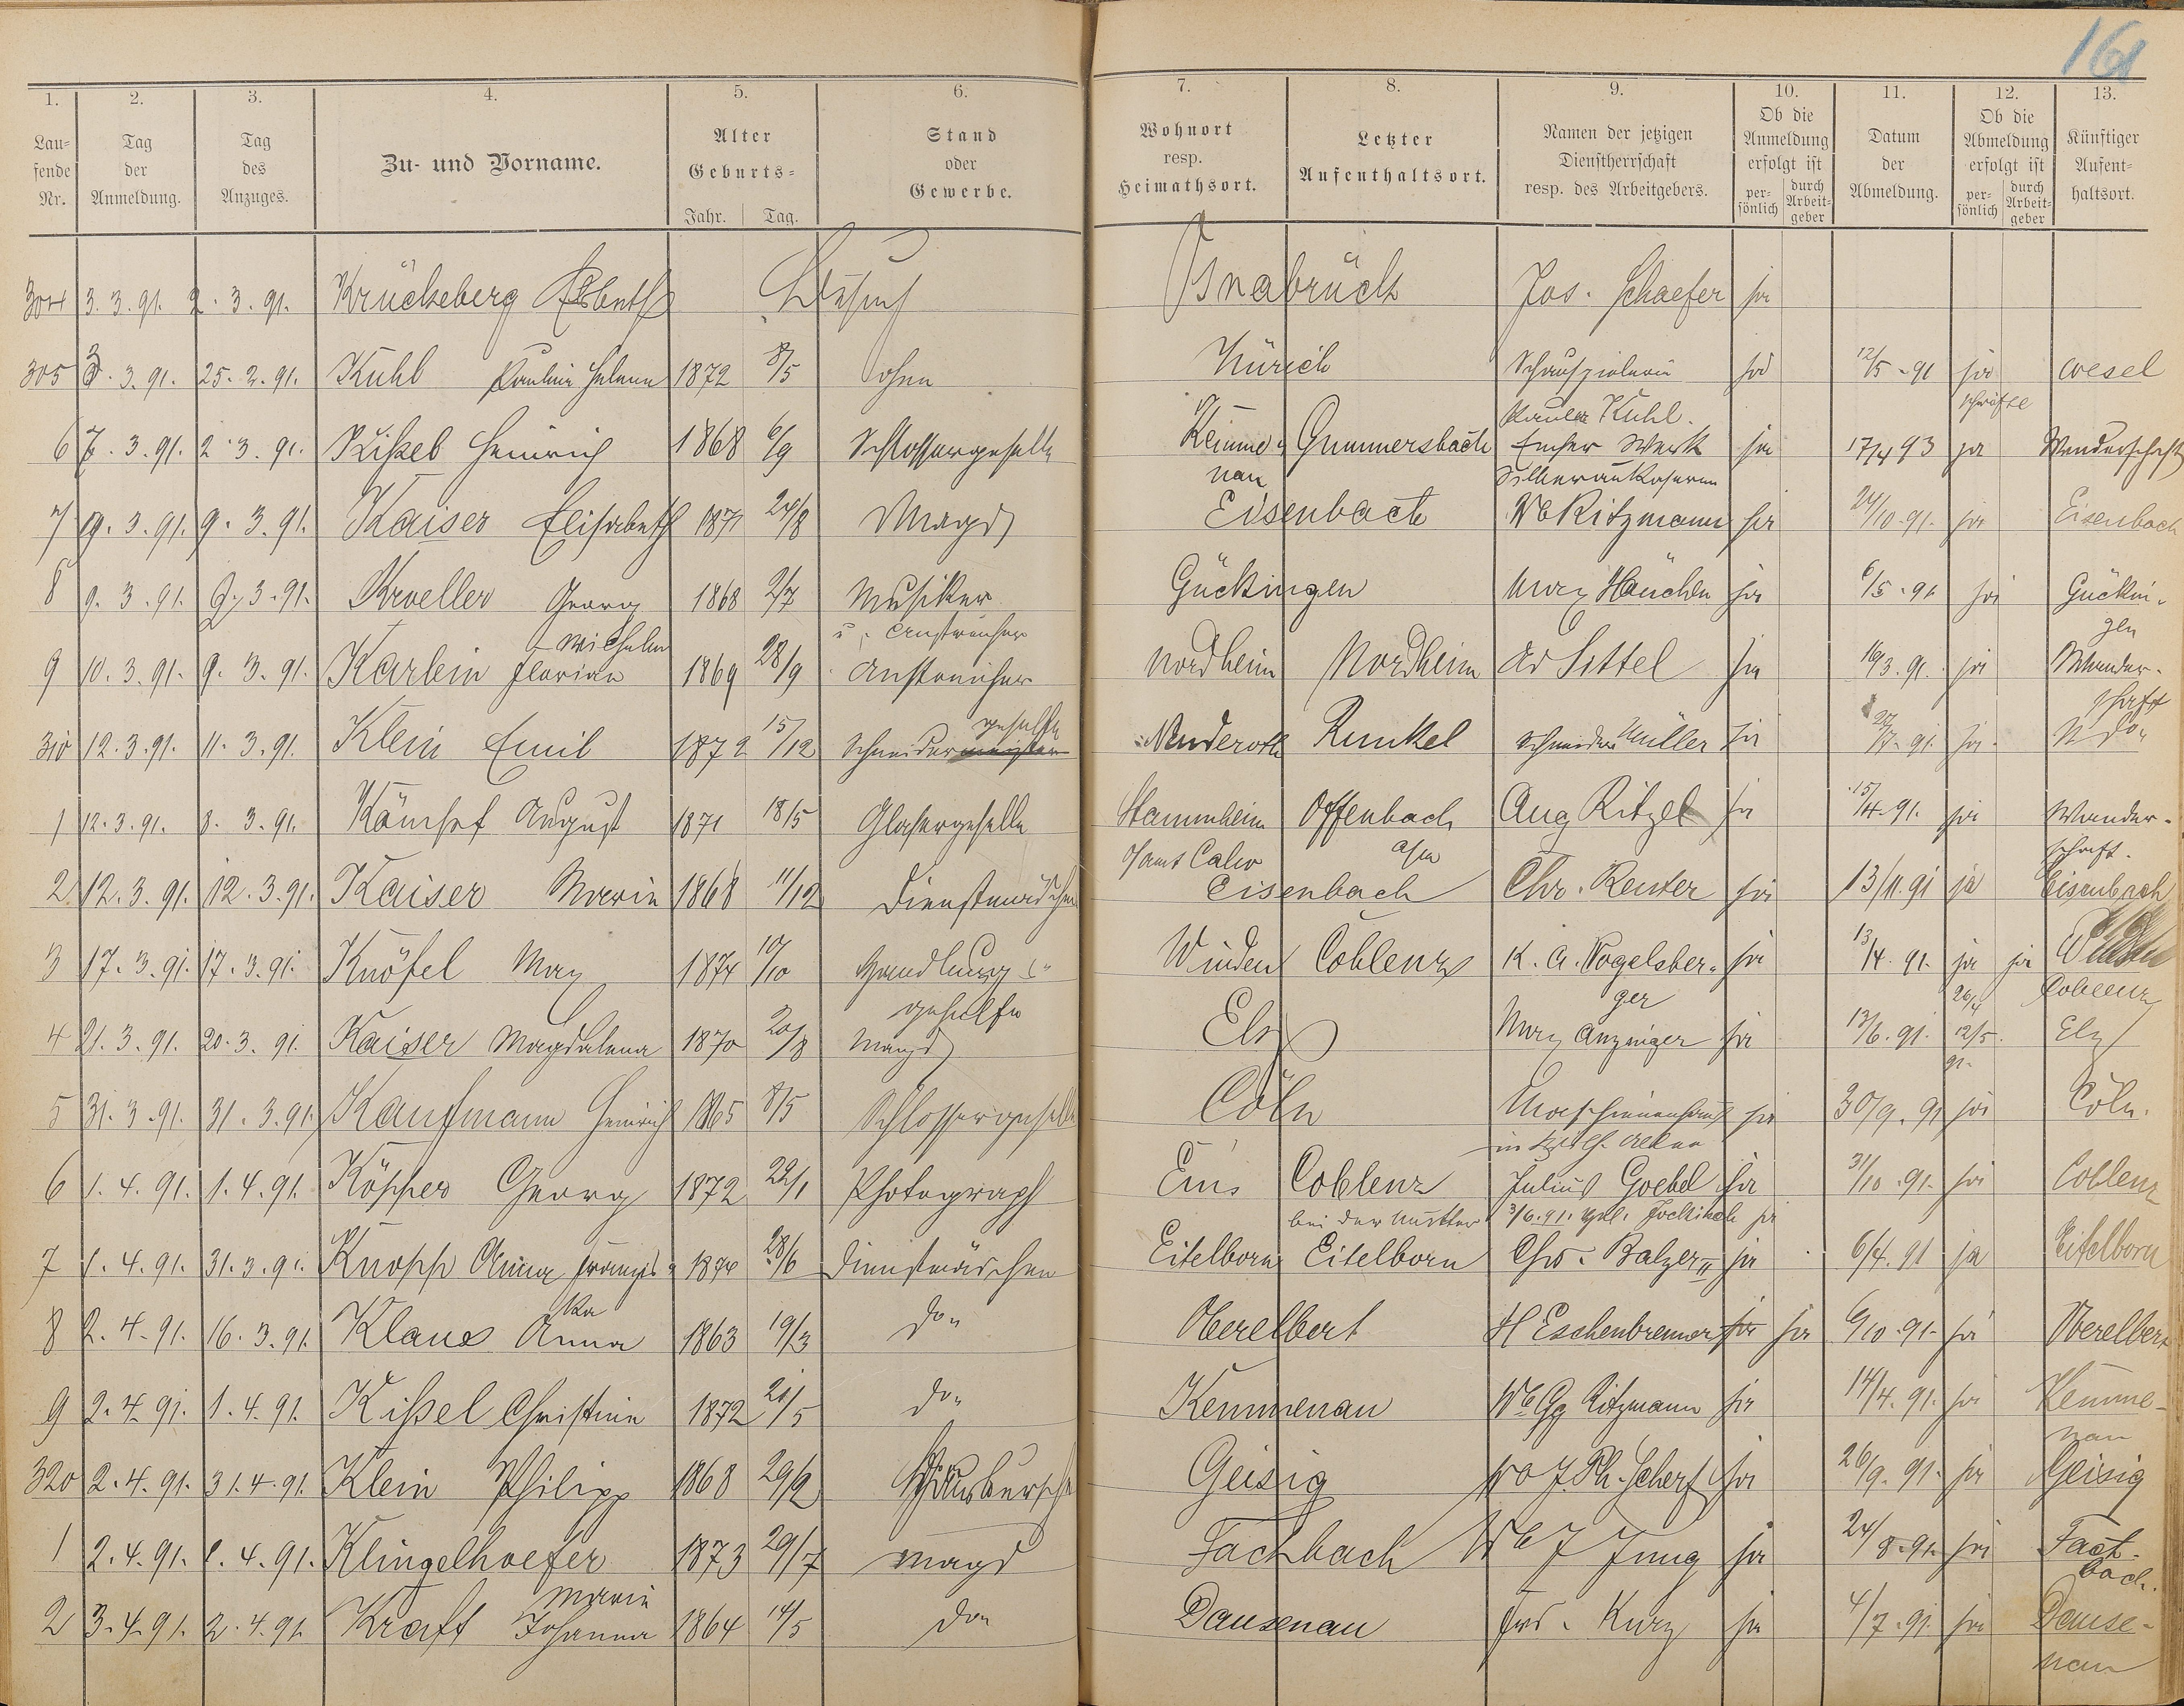 161
1. 2. 3. 4. 5. 6. 7. 8. 9. 10. 11. 12. 13.
Lau-
fende
Nr.
Tag
der
Anmeldung.
Tag
des
Anzuges.
Zu- und Vorname.
Alter
Geburts-
Jahr. Tag.
Stand
oder
Gewerbe.
Wohnort
resp.
Heimathsort.
Letzter
Aufenthaltsort.
Namen der jetzigen
Dienstherrschaft
resp. des Arbeitgebers.
Ob die
Anmeldung
erfolgt ist
per-
sönlich
durch
Arbeit-
geber
Datum
der
Abmeldung.
Ob die
Abmeldung
erfolgt ist
per-
sönlich
durch
Arbeit-
geber
Künftiger
Aufent-
haltsort.
304 3.3.91. 2.3.91. Krückeberg Elsbeth Besuch Osnabrück Jos. Schaefer ja
305 3.3.91. 25.2.91. Kuhl Pauline Helene 1872 8/5 ohne Zürich Schauspielerin ja 12/5.91 ja Wesel
Paula Kuhl.
6 7.3.91. 2.3.91. Kißel Heinrich 1868 6/9 Schlossergeselle Kemme- Gummersbach Emser Werk ja 17/4 93 ja Wanderschaft
nau
7 9.3.91. 9.3.91. Kaiser Elisabeth 1871 24/8 Magd Eisenbach We Ritzmann ja 24/10.91. ja Eisenbach
8 9.3.91. 9.3.91. Kroeller Georg 1868 2/7 Musiker Gückingen Max Hänchen ja 6/5.91 ja Gückin-
Wilhelm u. Anstreicher gen
9 10.3.91. 9.3.91. Karlein Florian 1869 28/9 Anstreicher Nordheim Nordheim Ad Sittel ja 16/3.91. ja Wander-
geselle schaft
310 12.3.91. 11.3.91. Klein Emil 1872 15/12 Schneidermeister Nenderoth Runkel Schneider Müller ja ja do
1 12.3.91. 8.3.91. Kämpf August 1871 18/5 Glasergeselle Stammheim Offenbach Aug Ritzel ja 15/4.91. ja Wander-
O/amt Calw a/m schaft.
2 12.3.91. 12.3.91. Kaiser Marie 1868 11/12 Dienstmädchen Eisenbach Chr. Reuter ja 13/11.91 ja Eisenbach
3 17.3.91. 17.3.91. Knöfel Max 1874 10/10 Handlungs- Winden Coblenz K. A. Vogelsber- ja 13/4.91. ja ja
gehülfe ger 26/4 Coblenz
4 21.3.91. 20.3.91. Kaiser Magdalena 1870 20/8 Magd Elz Max Anzinger ja 13/6.91. 12/5. Elz
91.
5 31.3.91. 31.3.91. Kaufmann Heinrich 1865 8/5 Schlossergeselle Cöln ja 30/9.91 ja Cöln.
6 1.4.91. 1.4.91. Köpper Georg 1872 22/1 Photograph Ems Coblenz Julius Goebel ja 31/10.91. ja Coblenz
bei der Mutter 3/6.91. ja
7 1.4.91. 31.3.91. Knopp Anna Franzis- 1874 28/6 Dienstmädchen Eitelborn Eitelborn Chr. Balzer II ja 6/4.91 ja Eitelborn
ka
8 2.4.91. 16.3.91. Klaus Anna 1863 19/3 do Oberelbert H Eschenbrenner ja ja 6/10.91. ja Oberelbert
9 2.4.91. 1.4.91. Kißel Christine 1872 21/5 do Kemmenau We Gg Ritzmann ja 14/4.91. ja Kemme-
nau
320 2.4.91. 31.4.91. Klein Philipp 1868 29/2 Hausbursche Geisig J. Ph. Scherf ja 26/9.91. ja Geisig
1 2.4.91. 1.4.91. Klingelhoefer 1873 29/7 Magd Fachbach We J Jung ja 24/8.91. ja Fach-
Marie bach.
2 3.4.91. 2.4.91. Kraft Johanna 1864 14/5 do Dausenau Frd. Kurz ja 4/7.91. ja Dause-
nau